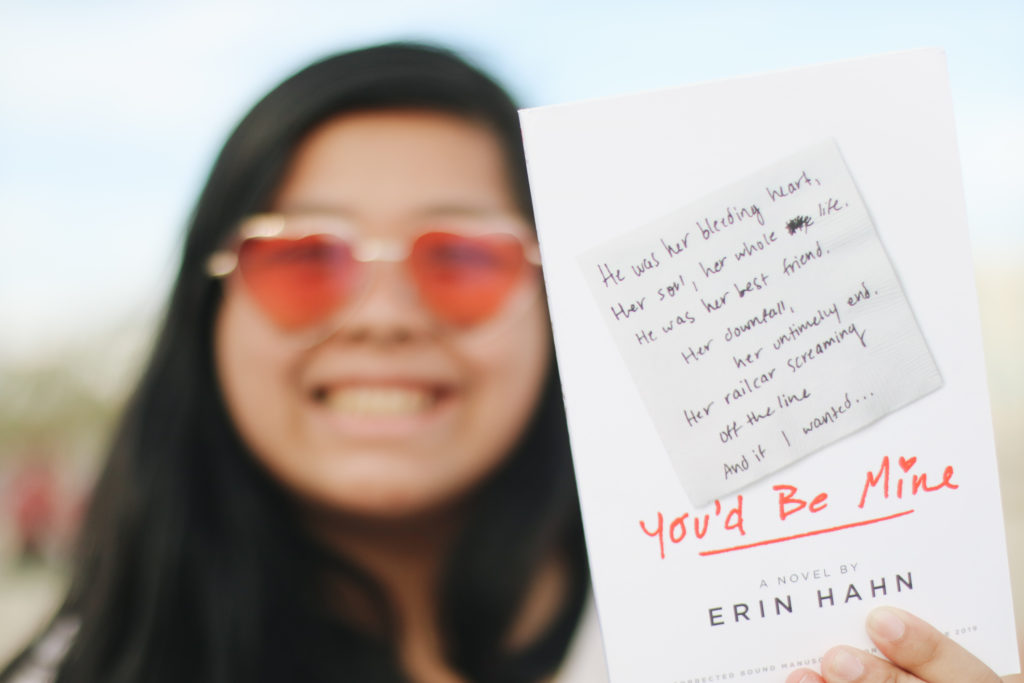 He was her bleeding heart,
Her soul, her whole life.
He was her best friend.
Her downfall,
her untimely end.
Her railcar screaming
off the line
And if I wanted...
You'd Be Mine
A NOVEL BY
ERIN HAHN
BOUND 2019